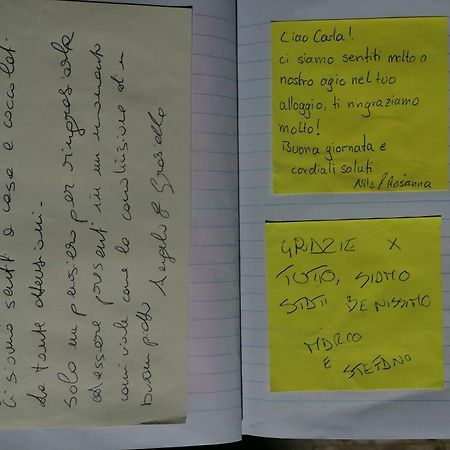 Ci siamo sentiti a casa e coccolati
da tante attenzioni.
Solo un pensiero per ringraziarla
ed essere presenti in un momento
conviviale come la condivisione di un
buon pasto Angelo & Graziella
Ciao Carla!
ci siamo sentiti molto a
nostro agio nel tuo
alloggio, ti ringraziamo
molto!
Buona giornata e
cordiali saluti
Nils & Rosanna
GRAZIE X
TUTTO, SIAMO
STATI BENISSIMO
MARCO
E STEFANO